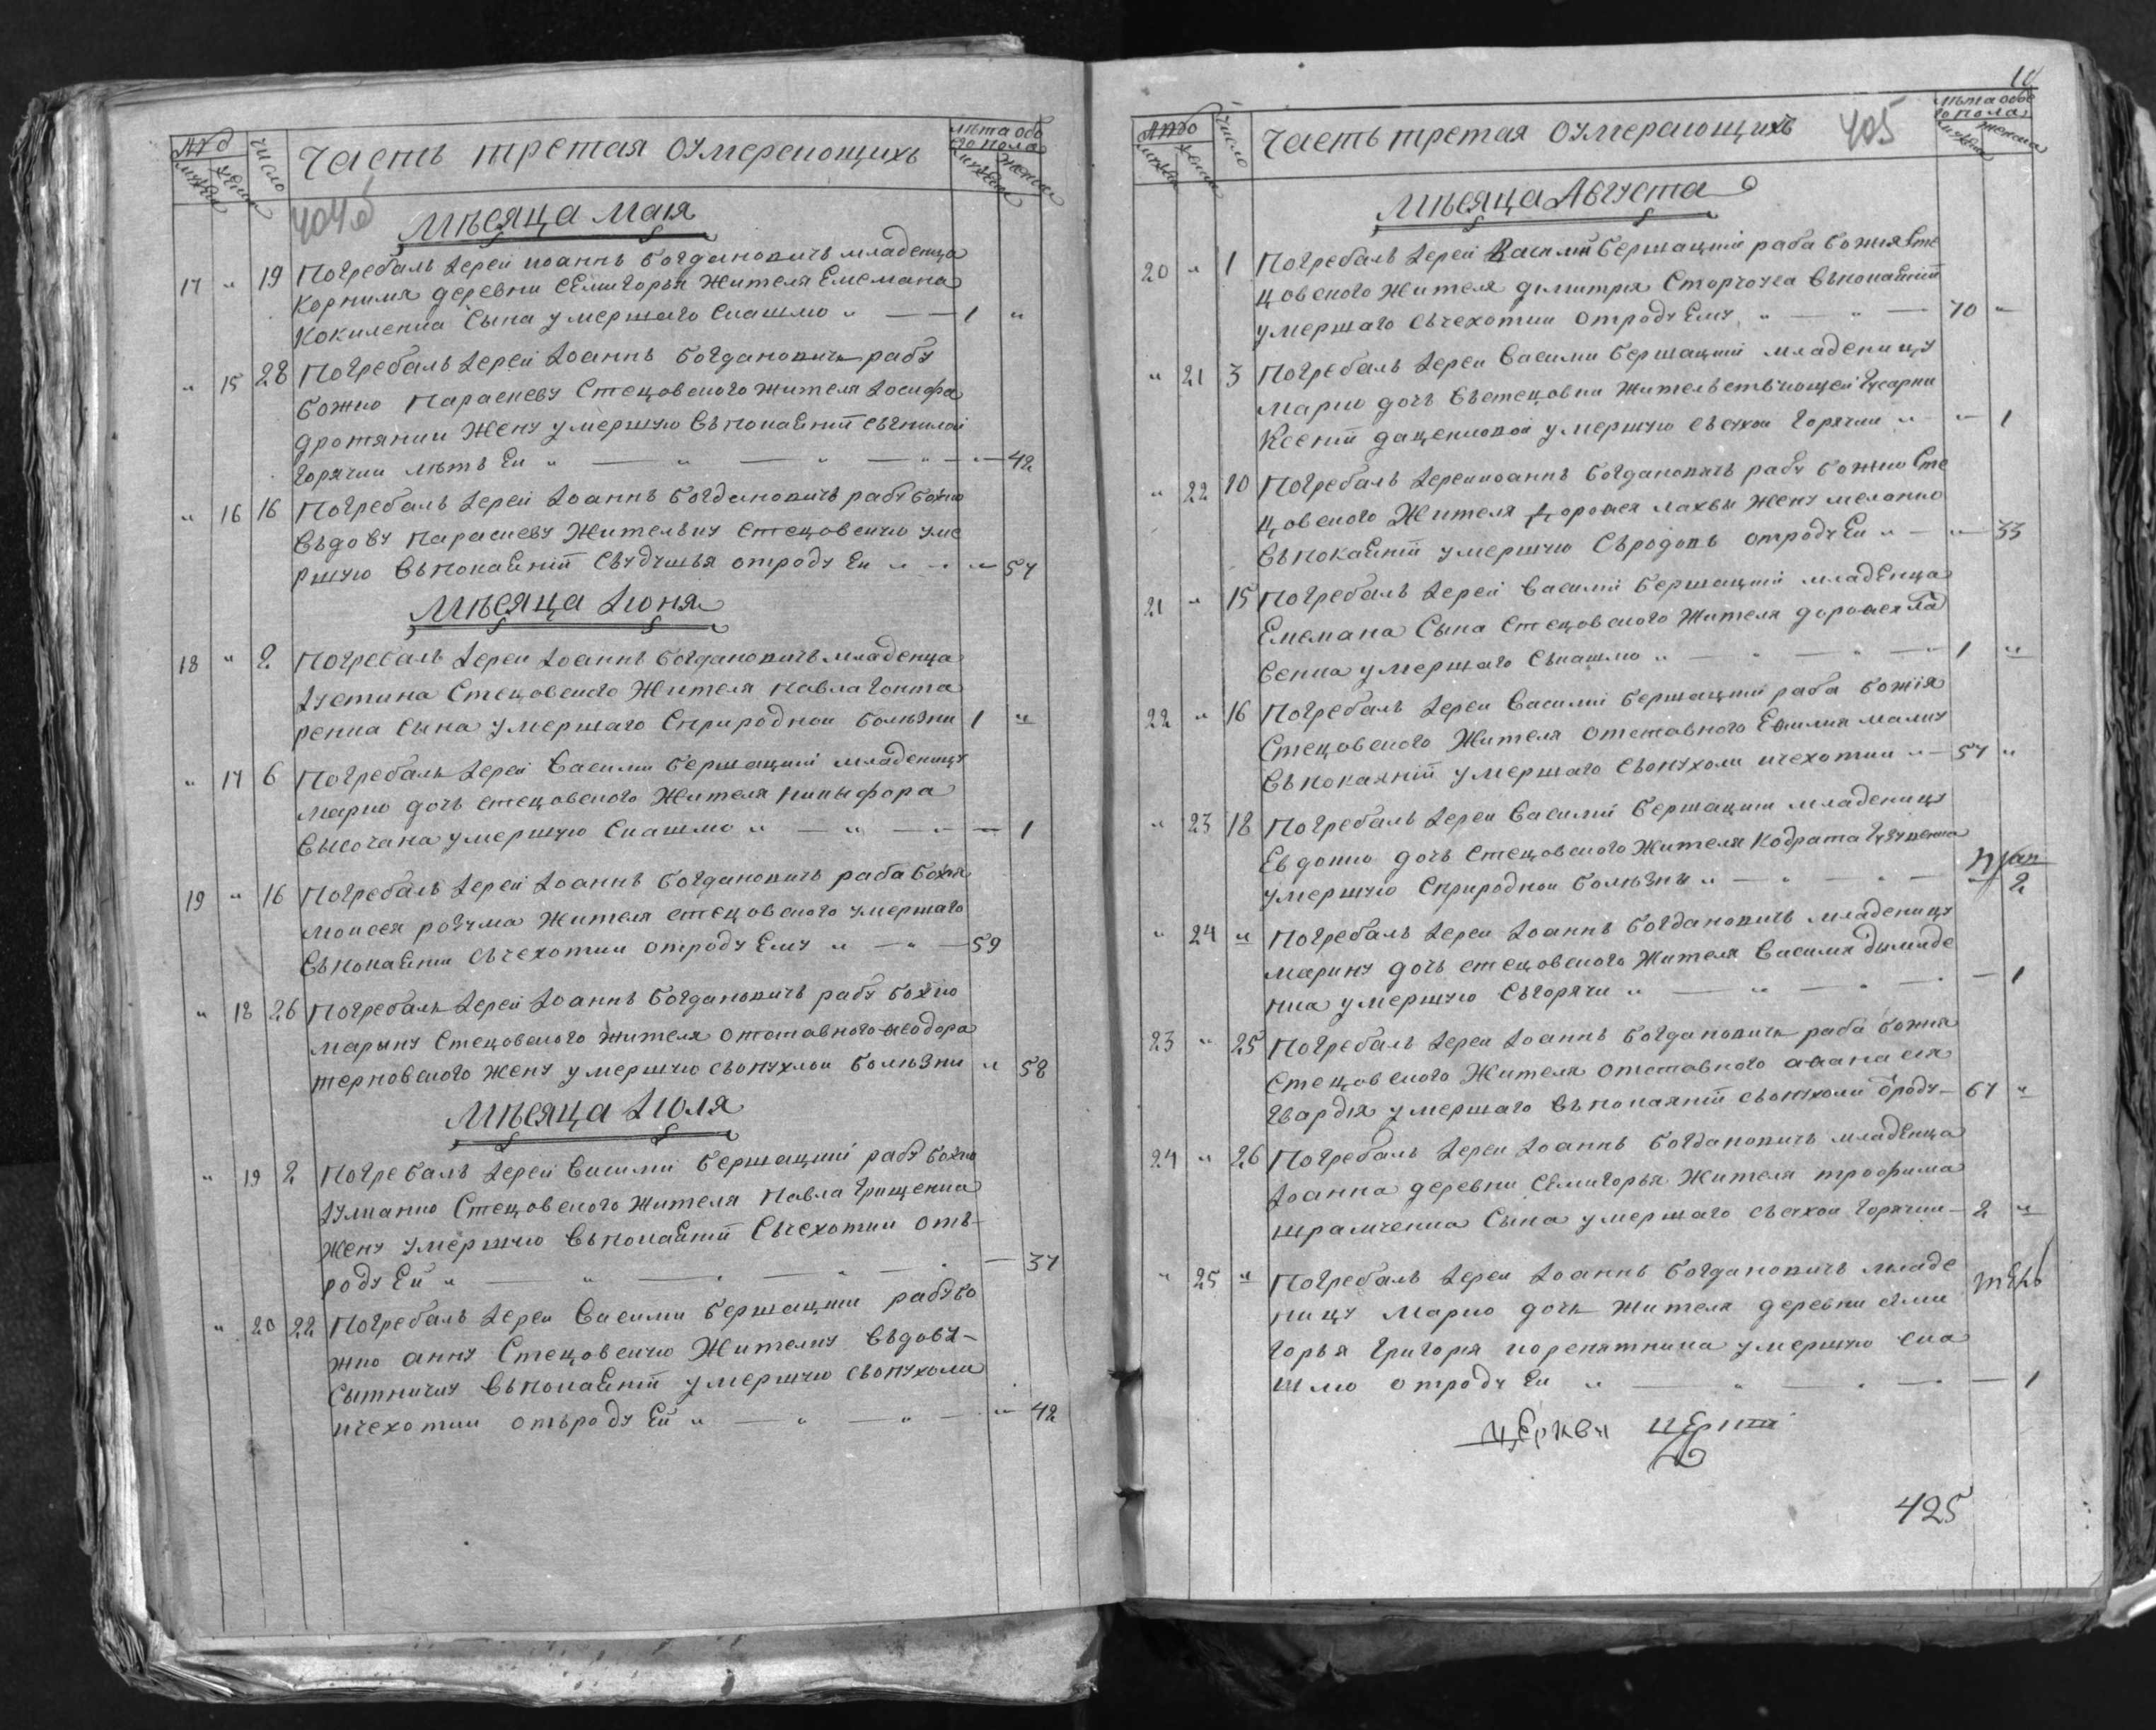 Число
Часть третая оумерающихъ
лѣта обо
его пола
404об
Мѣсяца Маия
17 " 19 Погребалъ Іерей Иоаннъ Богдановичъ младенца
Корнилія деревни Семигорья Жителя Емемана
Кокиленка Сына умершаго Скашлю " — — 1 "
" 15 28 Погребалъ Іерей Іоаннъ Богдановичъ рабу
божию Параскеву Стецовского жителя Іосифа
дротянки Жену умершую Въ покаяніи Съгнилой
Горячки лѣтъ Ей " — " — " — " — 42
" 16 16 Погребалъ Іерей Іоаннъ Богдановичъ рабу божию
Въдову Параскеву Жительку Стецовскую уме
ршую Въ покаяніи Съудушья отроду Ей " — " — 57
Мѣсяца Іюня
18 " 2 Погребалъ Іерей Іоаннъ Богдановичъ младенца
Іустина Стецовского Жителя Павла Гонта
ренка Сына умершаго Сприродной болѣзни 1 "
" 17 6 Погребалъ Іерей Василий Бершацкий младеницу
Марию дочь стецовского Жителя Никыфора
Высочана умершую Скашлю " — " — " — 1
19 " 16 Погребалъ Іерей Іоаннъ Богдановичъ раба божия
Моисея розума Жителя стецовского умершаго
Въ покаянии Съчехотки отроду Ему " — " — 59
" 18 26 Погребалъ Іерей Іоаннъ Богдановичъ рабу божию
Марыну Стецовского жителя отставного Ѳеодора
терновского Жену умершую съопухлой болѣзни " 58
Мѣсяца Іюля
" 19 2 Погребалъ Іерей Василий Бершацкий рабу божию
Іулианию Стецовского Жителя Павла Грищенка
Жену умершую Въ покаяніи Съчехотки отъ-
роду Ей " — " — " — " — " — 37
" 20 22 Погребалъ Іерей Василий Бершацкий рабу бо
жию анну Стецовскую Жителку Въдову-
Сытничку Въ покаяніи умершую съопухоли
ичехотки отъроду Ей " — " — " — " — 42
10
Число
Часть третая оумерающихъ 405
лѣта обо
его пола
Мѣсяца Августа
20 " 1 Погребалъ Іерей Василий Бершацкий раба божия Сте
цовского жителя димитрия Сторчоуса Въ покаяніи
умершаго Съчехотки отроду Ему " — " — 70 "
" 21 3 Погребалъ Іерей Василий Бершацкий младеницу
Марию дочь Въстецовки Жительствующей Гусарки
Ксеніи даценковой умершую Съсухой Горячки " — " 1
" 22 10 Погребалъ Іерей Иоаннъ Богдановичъ рабу божию Сте
цовского Жителя Дороѳея лахвы Жену меланию
Въпокаяніи умершую Съродовъ отроду Ей " — " 33
21 " 15 Погребалъ Іерей Василий Бершацкий младенца
Емемана Сына Стецовского Жителя дороѳея Га
Сенка умершаго Съкашлю " — " — " — 1 "
22 " 16 Погребалъ Іерей Василий Бершацкий раба божия
Стецовского Жителя отставного Еѳимия малих
Въпокаяніи умершаго Съопухоли ичехотки " — 57 "
" 23 18 Погребалъ Іерей Василий Бершацкий младеницу
Евдокию дочь Стецовского Жителя Кодрата Гузуненка
умершую Сприродной болѣзни " — " — " — 2
" 24 " Погребалъ Іерей Іоаннъ Богдановичъ младеницу
Марину дочь стецовского Жителя Василия Дыниде
нка умершую Съгорячи " — " — " — 1
23 " 25 Погребалъ Іерей Іоаннъ Богдановичъ раба божия
Стецовского Жителя отставного аѳанасия
Гвардия умершаго Въпокаянiи съопухоли ѿроду — 67 "
24 " 26 Погребалъ Іерей Іоаннъ Богдановичъ младенца
Іоанна деревни Семигорья Жителя трофима
шрамченка Сына умершаго съсухой Горячки — 2 "
" 25 " Погребалъ Іерей Іоаннъ Богдановичъ младе
ницу Марию дочь жителя деревни семи
горья Григория коренятника умершую ска
шлю отроду Ей " — " — " — 1
церкви
425